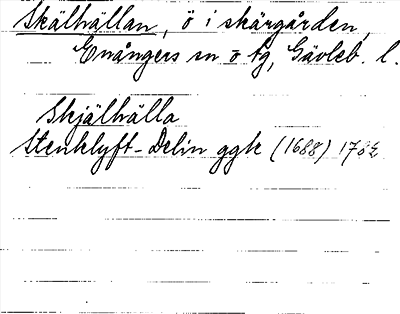 Skälhällan, ö i skärgården,
Enångers sn o tg, Gävleb. l.
Skjälhälla
Stenklyft-Delin ggk (1688)